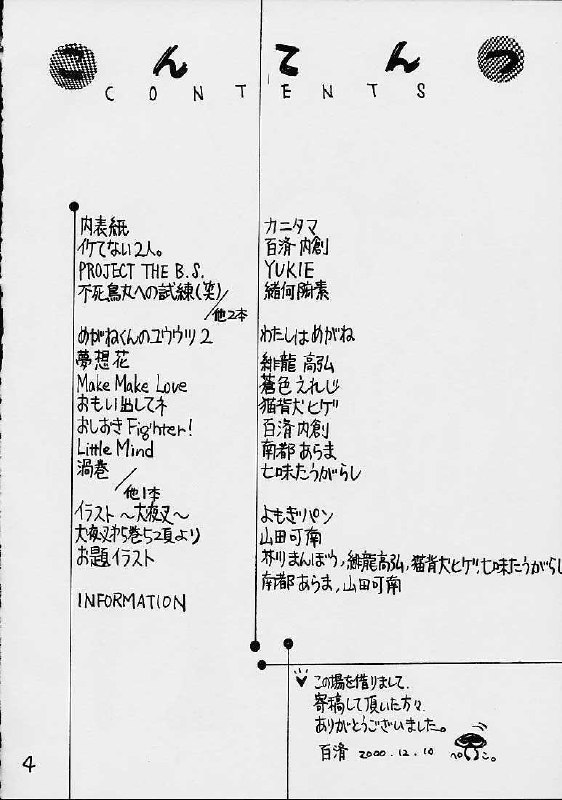 こんてんつ
CONTENTS
内表紙 カニタマ
イケてない2人。 百済内創
PROJECT THE B.S. YUKIE
不死鳥丸への試練(笑) 緒何陶素
/他2本
めがねくんのユウウツ2 わたしはめがね
夢想花 緋龍高弘
Make Make Love 蒼色えれじ
おもい出してネ 猫背犬ヒゲ
おしおきFighter! 百済内創
Little Mind 南都あらま
渦巻 七味たうがらし
/他1本
イラスト〜犬夜叉〜 よもぎパン
犬夜叉第5巻52頁より 山田可南
お題イラスト まんぼう,緋龍高弘,猫背犬ヒゲ,七味たうがらし
南都あらま,山田可南
INFORMATION
この場を借りまして、
寄稿して頂いた方々、
ありがとうございました。
百済 2000.12.10 ぺこ。
4